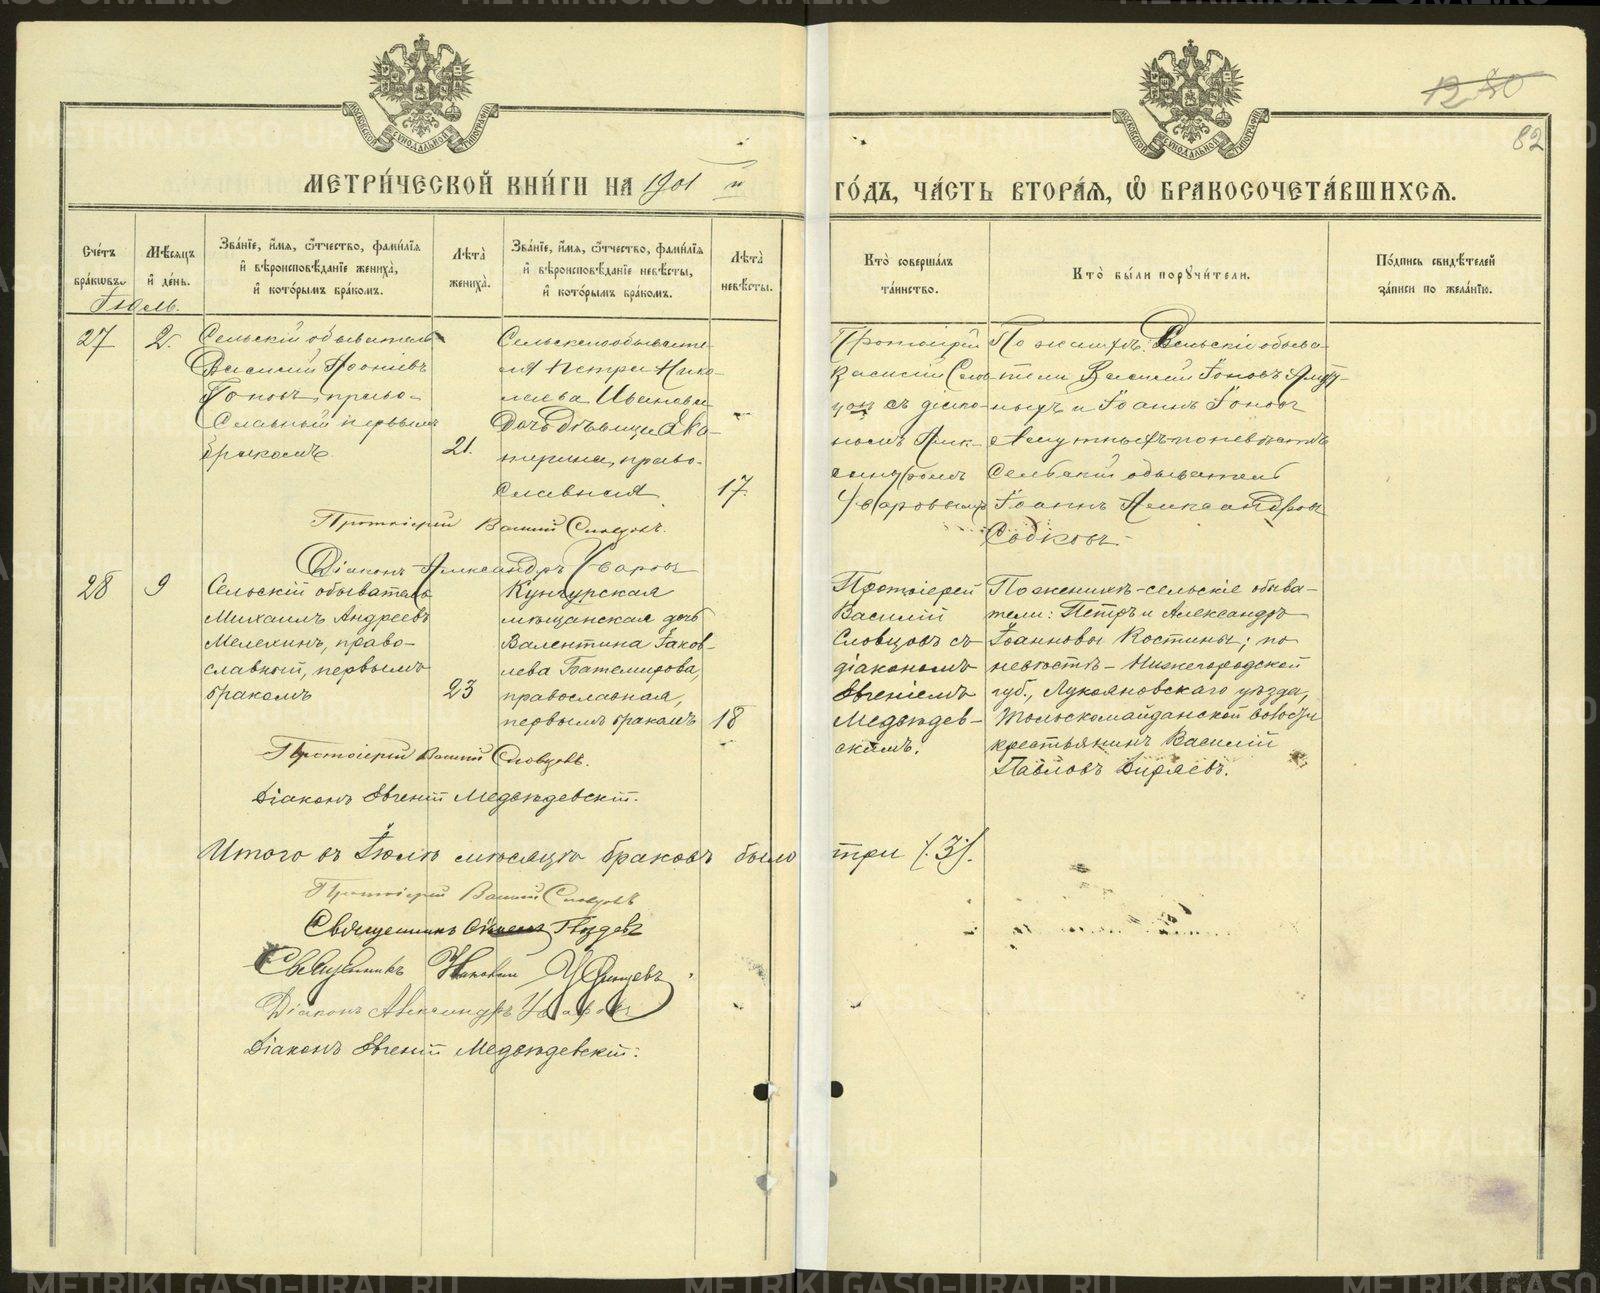 12 80
82
МЕТРИ́ЧЕСКОЙ КНИ́ГИ НА 1901 й ГО́ДЪ, ЧА́СТЬ ВТОРА́Я, Ѽ БРАКОСОЧЕТА́ВШИХСЯ.
Сче́тъ бра́кѡвъ.
Мѣ́сяцъ и҆ де́нь.
Зва́нїе, и҆́мя, ѻ҆́тчество, фами́лїя и҆ вѣроисповѣ́данїе жениха̀, и҆ кото́рымъ бра́комъ.
Лѣ́та жениха̀.
Зва́нїе, и҆́мя, ѻ҆́тчество, фами́лїя и҆ вѣроисповѣ́данїе невѣ́сты, и҆ кото́рымъ бра́комъ.
Лѣ́та невѣ́сты.
Кто̀ соверша́лъ та́инство.
Кто̀ бы́ли порꙋчи́тели.
По́дпись свидѣ́телей за́писи по жела́нїю.
Іюль.
27
2.
Сельскій обыватель
Василій
Іоновъ, право-
славный первымъ
бракомъ
21.
Сельскаго обывате-
ля Петра Нико-
лаева Иванова
дочь дѣвица Ека-
терина, право-
славная
17.
Протоіерей
Василій Слов-
цовъ съ діако-
номъ Алек-
сандромъ
Уваровымъ
По женихѣ: Сельскіе обыва-
тели Василій Іоновъ
и Іоаннъ Іоновъ
по невѣстѣ
Сельскій обыватель
Іоаннъ Александровъ
Протоіерей Василій Словцовъ.
Діаконъ Александръ Уваровъ
28
9
Сельскій обыватель
Михаилъ Андреевъ
Мелехинъ, право-
славный, первымъ
бракомъ
23
Кунгурская
мѣщанская дочь
Валентина Іаков-
лева Батемирова,
православная,
первымъ бракомъ
18
Протоіерей
Василій
Словцовъ съ
діакономъ
Евгеніемъ
Медвѣдев-
скимъ.
По женихѣ - сельскіе обыва-
тели: Петръ и Александръ
Іоанновы Костины; по
невѣстѣ - Нижегородской
губ., Лукояновскаго уѣзда,
Тольскомайданской волости
крестьянинъ Василій
Павловъ Ширяевъ.
Протоіерей Василій Словцовъ.
Діаконъ Евгеній Медвѣдевскій.
Итого въ Іюлѣ мѣсяцѣ браковъ было три /.3/.
Протоіерей Василій Словцовъ
Священникъ Гвоздевъ
Священникъ
Діаконъ Александръ Уваровъ
Діаконъ Евгеній Медвѣдевскій.
METRIKI.GASO-URAL.RU